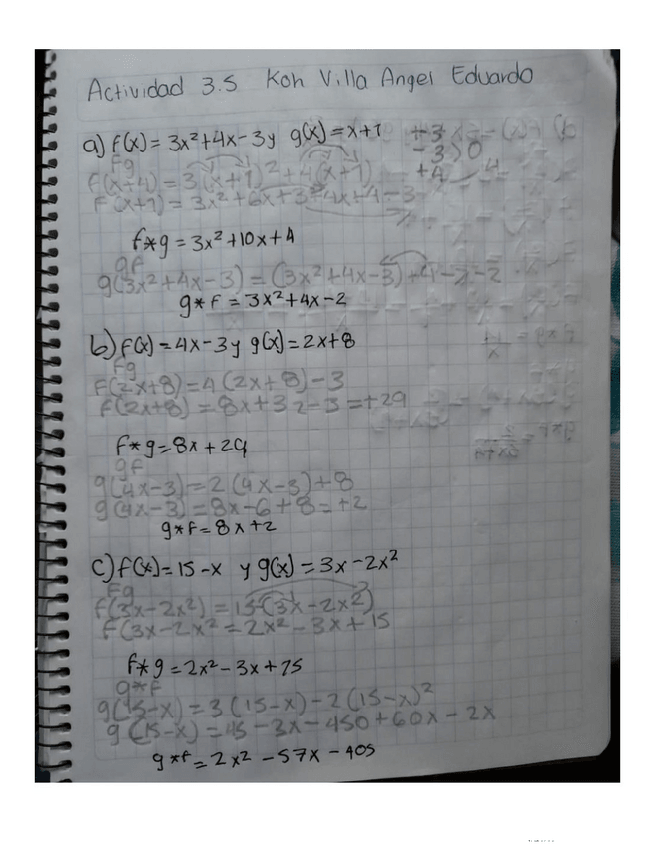 Actividad 3.5 Koh Villa Angel Eduardo
a) f(x) = 3x²+4x-3 y g(x) = x+1
+3
-3>0
+4
Fg
f(x+4) = 3(x+1)²+4(x+1)
F(x+1) = 3x²+6x+3+4x+4-3
f*g = 3x²+10x+4
gf
g(3x²+4x-3) = (3x²+4x-3)+1-2-2
g*f = 3x²+4x-2
b) f(x) = 4x-3 y g(x) = 2x+8
Fg
F(2x+8)=4(2x+8)-3
f(2x+8) = 8x+32-3 =+29
f*g=8x+29
gf
g(4x-3)=2(4x-3)+8
g(4x-3) = 8x-6+8=+2
g*f=8x+2
c) f(x) = 15-x y g(x) = 3x-2x²
Fg
f(3x-2x²) = 15-(3x-2x²)
f(3x-2x² = 2x²-3x+15
f*g = 2x²-3x+15
g*f
g(15-x) = 3(15-x)-2(15-x)²
g(15-x) = 45-3x-450+60x-2x
g*f = 2x²-57x-405